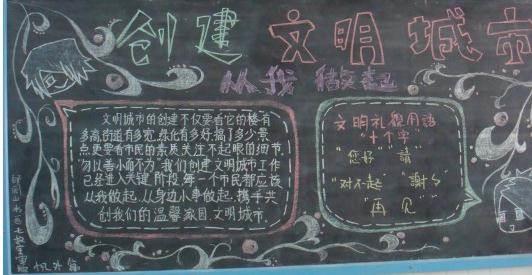 创建文明城市
从我
文明城市的创建不仅要看它的楼有
多高街道有多宽,绿化有多好,搞了多少景
点更要看市民的素质关注不起眼的细节
"勿以善小而不为"我们创建文明城市工作
已经进入关键阶段,每一个市民都应该
从我做起,从身边小事做起,携手共
创我们的温馨家园,文明城市。
文明礼貌用语
"十个字"
"您好" "請"
"对不起" "謝"
"再见"